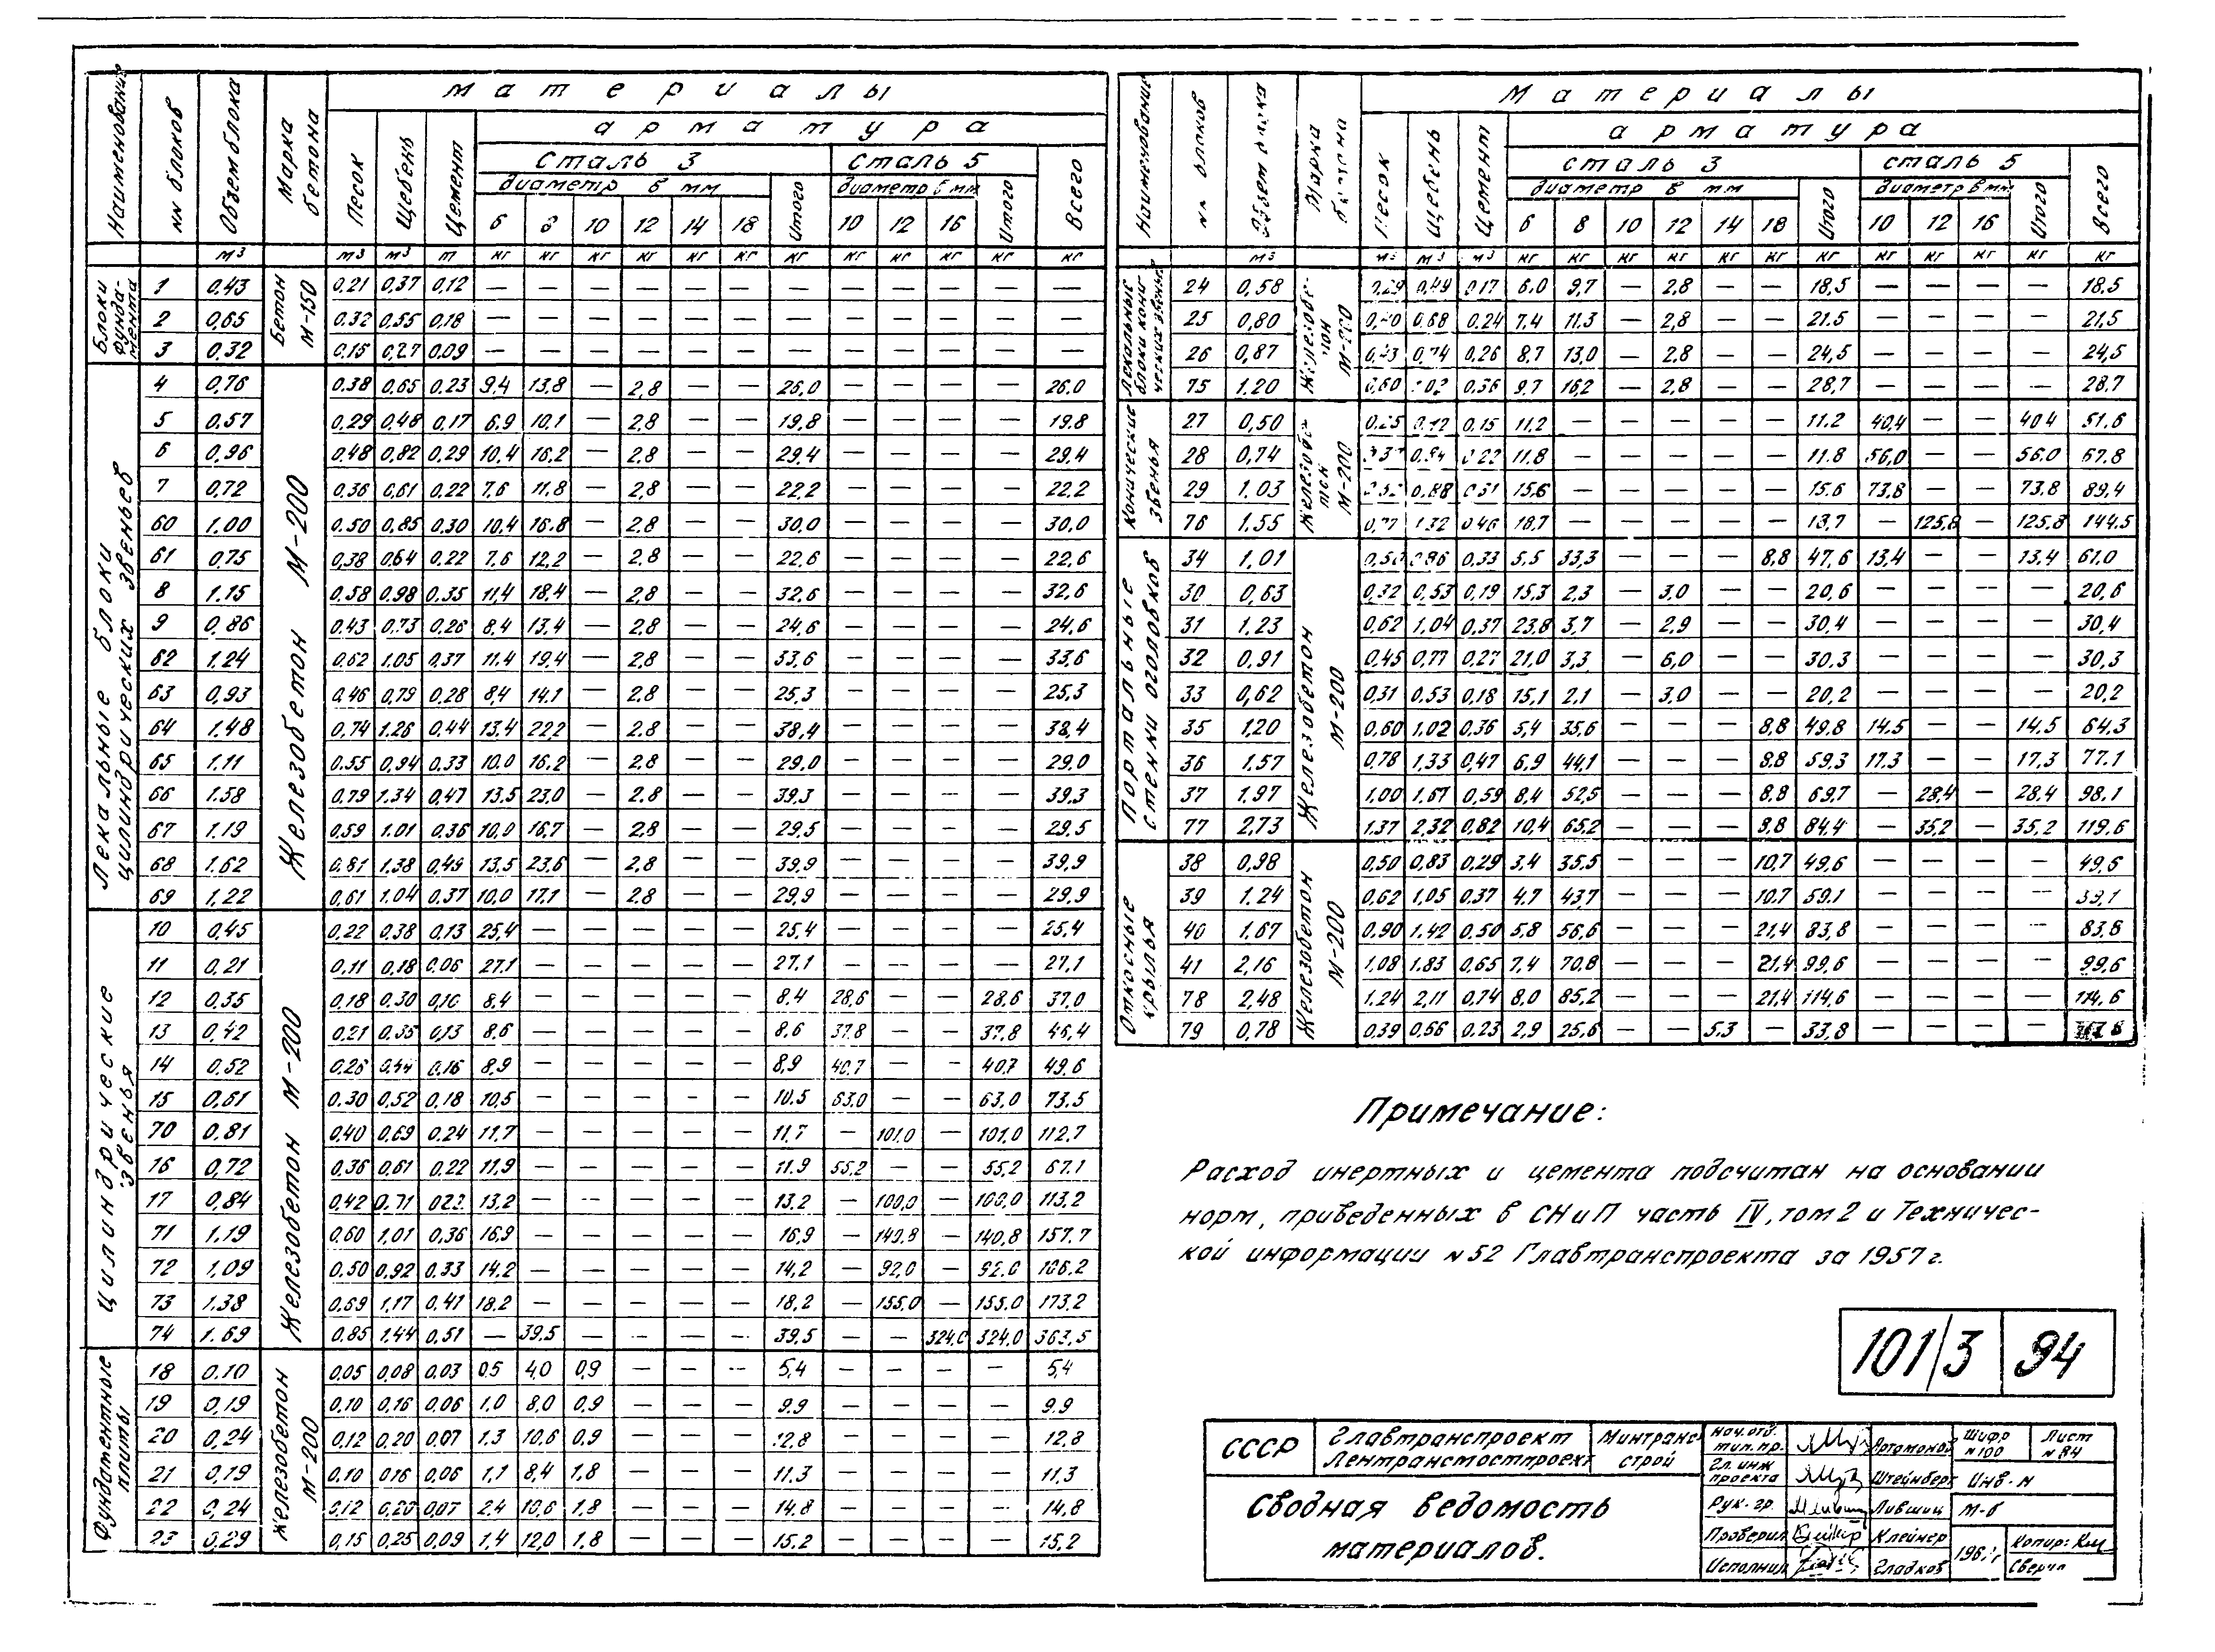 Наименование | №№ блоков | Объем блока | Марка бетона | Материалы
Песок | Щебень | Цемент | арматура
сталь 3 | сталь 5 | Всего
диаметр в мм | Итого | диаметр в мм | Итого
6 | 8 | 10 | 12 | 14 | 18 | 10 | 12 | 16
м³ | м³ | м³ | т | кг | кг | кг | кг | кг | кг | кг | кг | кг | кг | кг | кг
Блоки фундамента
Бетон М-150
1 | 0,43 | 0,21 | 0,37 | 0,12 | — | — | — | — | — | — | — | — | — | — | — | —
2 | 0,65 | 0,32 | 0,55 | 0,18 | — | — | — | — | — | — | — | — | — | — | — | —
3 | 0,32 | 0,15 | 0,27 | 0,09 | — | — | — | — | — | — | — | — | — | — | — | —
Лекальные блоки цилиндрических звеньев
Железобетон М-200
4 | 0,76 | 0,38 | 0,65 | 0,23 | 9,4 | 13,8 | — | 2,8 | — | — | 26,0 | — | — | — | — | 26,0
5 | 0,57 | 0,29 | 0,48 | 0,17 | 6,9 | 10,1 | — | 2,8 | — | — | 19,8 | — | — | — | — | 19,8
6 | 0,96 | 0,48 | 0,82 | 0,29 | 10,4 | 16,2 | — | 2,8 | — | — | 29,4 | — | — | — | — | 29,4
7 | 0,72 | 0,36 | 0,61 | 0,22 | 7,6 | 11,8 | — | 2,8 | — | — | 22,2 | — | — | — | — | 22,2
60 | 1,00 | 0,50 | 0,85 | 0,30 | 10,4 | 16,8 | — | 2,8 | — | — | 30,0 | — | — | — | — | 30,0
61 | 0,75 | 0,38 | 0,64 | 0,22 | 7,6 | 12,2 | — | 2,8 | — | — | 22,6 | — | — | — | — | 22,6
8 | 1,15 | 0,58 | 0,98 | 0,35 | 11,4 | 18,4 | — | 2,8 | — | — | 32,6 | — | — | — | — | 32,6
9 | 0,86 | 0,43 | 0,73 | 0,26 | 8,4 | 13,4 | — | 2,8 | — | — | 24,6 | — | — | — | — | 24,6
62 | 1,24 | 0,62 | 1,05 | 0,37 | 11,4 | 19,4 | — | 2,8 | — | — | 33,6 | — | — | — | — | 33,6
63 | 0,93 | 0,46 | 0,79 | 0,28 | 8,4 | 14,1 | — | 2,8 | — | — | 25,3 | — | — | — | — | 25,3
64 | 1,48 | 0,74 | 1,26 | 0,44 | 13,4 | 22,2 | — | 2,8 | — | — | 38,4 | — | — | — | — | 38,4
65 | 1,11 | 0,55 | 0,94 | 0,33 | 10,0 | 16,2 | — | 2,8 | — | — | 29,0 | — | — | — | — | 29,0
66 | 1,58 | 0,79 | 1,34 | 0,47 | 13,5 | 23,0 | — | 2,8 | — | — | 39,3 | — | — | — | — | 39,3
67 | 1,19 | 0,59 | 1,01 | 0,36 | 10,0 | 16,7 | — | 2,8 | — | — | 29,5 | — | — | — | — | 29,5
68 | 1,62 | 0,81 | 1,38 | 0,49 | 13,5 | 23,6 | — | 2,8 | — | — | 39,9 | — | — | — | — | 39,9
69 | 1,22 | 0,61 | 1,04 | 0,37 | 10,0 | 17,1 | — | 2,8 | — | — | 29,9 | — | — | — | — | 29,9
Цилиндрические звенья
Железобетон М-200
10 | 0,45 | 0,22 | 0,38 | 0,13 | 25,4 | — | — | — | — | — | 25,4 | — | — | — | — | 25,4
11 | 0,21 | 0,11 | 0,18 | 0,06 | 27,1 | — | — | — | — | — | 27,1 | — | — | — | — | 27,1
12 | 0,35 | 0,18 | 0,30 | 0,10 | 8,4 | — | — | — | — | — | 8,4 | 28,6 | — | — | 28,6 | 37,0
13 | 0,42 | 0,21 | 0,35 | 0,13 | 8,6 | — | — | — | — | — | 8,6 | 37,8 | — | — | 37,8 | 46,4
14 | 0,52 | 0,26 | 0,44 | 0,16 | 8,9 | — | — | — | — | — | 8,9 | 40,7 | — | — | 40,7 | 49,6
15 | 0,61 | 0,30 | 0,52 | 0,18 | 10,5 | — | — | — | — | — | 10,5 | 63,0 | — | — | 63,0 | 73,5
70 | 0,81 | 0,40 | 0,69 | 0,24 | 11,7 | — | — | — | — | — | 11,7 | — | 101,0 | — | 101,0 | 112,7
16 | 0,72 | 0,36 | 0,61 | 0,22 | 11,9 | — | — | — | — | — | 11,9 | 55,2 | — | — | 55,2 | 67,1
17 | 0,84 | 0,42 | 0,71 | 13,2 | — | — | — | — | — | 13,2 | — | 100,0 | — | 100,0 | 113,2
71 | 1,19 | 0,60 | 1,01 | 0,36 | 16,9 | — | — | — | — | — | 16,9 | — | 140,8 | — | 140,8 | 157,7
72 | 1,09 | 0,50 | 0,92 | 0,33 | 14,2 | — | — | — | — | — | 14,2 | — | 92,0 | — | 92,0 | 106,2
73 | 1,38 | 0,69 | 1,17 | 0,41 | 18,2 | — | — | — | — | — | 18,2 | — | 155,0 | — | 155,0 | 173,2
74 | 1,69 | 0,85 | 1,44 | 0,51 | — | 39,5 | — | — | — | — | 39,5 | — | — | 324,0 | 324,0 | 363,5
Фундаментные плиты
железобетон М-200
18 | 0,10 | 0,05 | 0,08 | 0,03 | 0,5 | 4,0 | 0,9 | — | — | — | 5,4 | — | — | — | — | 5,4
19 | 0,19 | 0,10 | 0,16 | 0,06 | 1,0 | 8,0 | 0,9 | — | — | — | 9,9 | — | — | — | — | 9,9
20 | 0,24 | 0,12 | 0,20 | 0,07 | 1,3 | 10,6 | 0,9 | — | — | — | 12,8 | — | — | — | — | 12,8
21 | 0,19 | 0,10 | 0,16 | 0,06 | 1,1 | 8,4 | 1,8 | — | — | — | 11,3 | — | — | — | — | 11,3
22 | 0,24 | 0,12 | 0,20 | 0,07 | 2,4 | 10,6 | 1,8 | — | — | — | 14,8 | — | — | — | — | 14,8
23 | 0,29 | 0,15 | 0,25 | 0,09 | 1,4 | 12,0 | 1,8 | — | — | — | 15,2 | — | — | — | — | 15,2
Наименование | №№ блоков | Объем блока | Марка бетона | Материалы
Песок | Щебень | Цемент | арматура
сталь 3 | сталь 5 | Всего
диаметр в мм | Итого | диаметр в мм | Итого
6 | 8 | 10 | 12 | 14 | 18 | 10 | 12 | 16
м³ | м³ | м³ | м³ | кг | кг | кг | кг | кг | кг | кг | кг | кг | кг | кг | кг
Лекальные блоки конических звеньев
Железобетон М-200
24 | 0,58 | 0,29 | 0,49 | 0,17 | 6,0 | 9,7 | — | 2,8 | — | — | 18,5 | — | — | — | — | 18,5
25 | 0,80 | 0,40 | 0,68 | 0,24 | 7,4 | 11,3 | — | 2,8 | — | — | 21,5 | — | — | — | — | 21,5
26 | 0,87 | 0,43 | 0,74 | 0,26 | 8,7 | 13,0 | — | 2,8 | — | — | 24,5 | — | — | — | — | 24,5
75 | 1,20 | 0,60 | 1,02 | 0,36 | 9,7 | 16,2 | — | 2,8 | — | — | 28,7 | — | — | — | — | 28,7
Конические звенья
Железобетон М-200
27 | 0,50 | 0,25 | 0,42 | 0,15 | 11,2 | — | — | — | — | — | 11,2 | 40,4 | — | — | 40,4 | 51,6
28 | 0,74 | 0,37 | 0,22 | 11,8 | — | — | — | — | — | 11,8 | 56,0 | — | — | 56,0 | 67,8
29 | 1,03 | 0,88 | 0,31 | 15,6 | — | — | — | — | — | 15,6 | 73,8 | — | — | 73,8 | 89,4
76 | 1,55 | 0,77 | 1,32 | 0,46 | 18,7 | — | — | — | — | — | 18,7 | — | 125,8 | — | 125,8 | 144,5
Портальные стенки оголовков
Железобетон М-200
34 | 1,01 | 0,50 | 0,86 | 0,33 | 5,5 | 33,3 | — | — | — | 8,8 | 47,6 | 13,4 | — | — | 13,4 | 61,0
30 | 0,63 | 0,32 | 0,53 | 0,19 | 15,3 | 2,3 | — | 3,0 | — | — | 20,6 | — | — | — | — | 20,6
31 | 1,23 | 0,62 | 1,04 | 0,37 | 23,8 | 3,7 | — | 2,9 | — | — | 30,4 | — | — | — | — | 30,4
32 | 0,91 | 0,45 | 0,77 | 0,27 | 21,0 | 3,3 | — | 6,0 | — | — | 30,3 | — | — | — | — | 30,3
33 | 0,62 | 0,31 | 0,53 | 0,18 | 15,1 | 2,1 | — | 3,0 | — | — | 20,2 | — | — | — | — | 20,2
35 | 1,20 | 0,60 | 1,02 | 0,36 | 5,4 | 35,6 | — | — | — | 8,8 | 49,8 | 14,5 | — | — | 14,5 | 64,3
36 | 1,57 | 0,78 | 1,33 | 0,47 | 6,9 | 44,1 | — | — | — | 8,8 | 59,3 | 17,3 | — | — | 17,3 | 77,1
37 | 1,97 | 1,00 | 1,67 | 0,59 | 8,4 | 52,5 | — | — | — | 8,8 | 69,7 | — | 28,4 | — | 28,4 | 98,1
77 | 2,73 | 1,37 | 2,32 | 0,82 | 10,4 | 65,2 | — | — | — | 8,8 | 84,4 | — | 35,2 | — | 35,2 | 119,6
Откосные крылья
Железобетон М-200
38 | 0,98 | 0,50 | 0,83 | 0,29 | 3,4 | 35,5 | — | — | — | 10,7 | 49,6 | — | — | — | — | 49,6
39 | 1,24 | 0,62 | 1,05 | 0,37 | 4,7 | 43,7 | — | — | — | 10,7 | 59,1 | — | — | — | — | 59,1
40 | 1,67 | 0,90 | 1,42 | 0,50 | 5,8 | 56,6 | — | — | — | 21,4 | 83,8 | — | — | — | — | 83,8
41 | 2,16 | 1,08 | 1,83 | 0,65 | 7,4 | 70,8 | — | — | — | 21,4 | 99,6 | — | — | — | — | 99,6
78 | 2,48 | 1,24 | 2,11 | 0,74 | 8,0 | 85,2 | — | — | — | 21,4 | 114,6 | — | — | — | — | 114,6
79 | 0,78 | 0,39 | 0,66 | 0,23 | 2,9 | 25,6 | — | — | 5,3 | — | 33,8 | — | — | — | —
Примечание:
Расход инертных и цемента подсчитан на основании
норм, приведенных в СНиП часть IV, том 2 и Техничес-
кой информации №52 Главтранспроекта за 1957 г.
101/3 | 94
СССР | Главтранспроект Лентрансмостпроект | Минтрансстрой
Сводная ведомость
материалов.
Нач. отд. тип. пр. | Артамонов | Шифр №100 | Лист №84
Гл. инж проекта | Штейнберг | Инв. №
Рук. гр. | Лившиц | М-б
Проверил | Клейнер | Копир:
Исполнил | Гладков | 196 г | Сверил